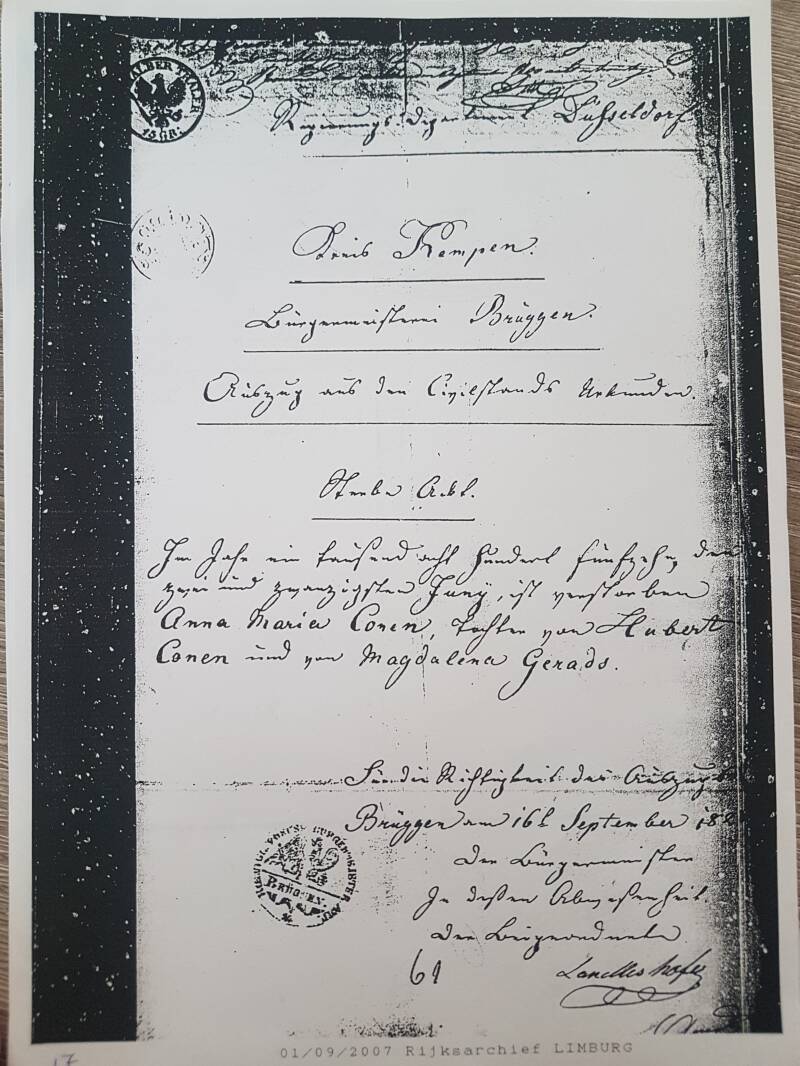 HALBER THALER
15 GR:
Regierungs Departement Düsseldorf
Kreis Kempen.
Bürgermeisterei Brüggen.
Auszug aus den Civilstands Urkunden.
Sterbe Act.
Im Jahr ein tausend acht hundert fünfzehn, den
zwei und zwanzigsten Juny, ist verstorben
Anna Maria Conen, Tochter von Hubert
Conen und von Magdalena Gerads.
Für die Richtigkeit des Auszugs
Brüggen am 16t September 18
Der Bürgermeister
In deßen Abwesenheit.
Der Beigeordnete
BRÜGGEN.
61
01/09/2007 Rijksarchief LIMBURG
17